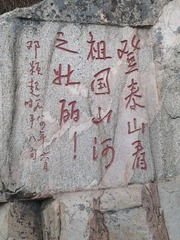 登泰山看
祖国山河
之壮丽！
邓颖超
年六月
时年八